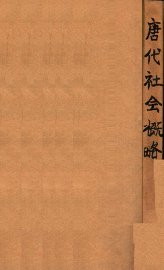 唐代社会概略